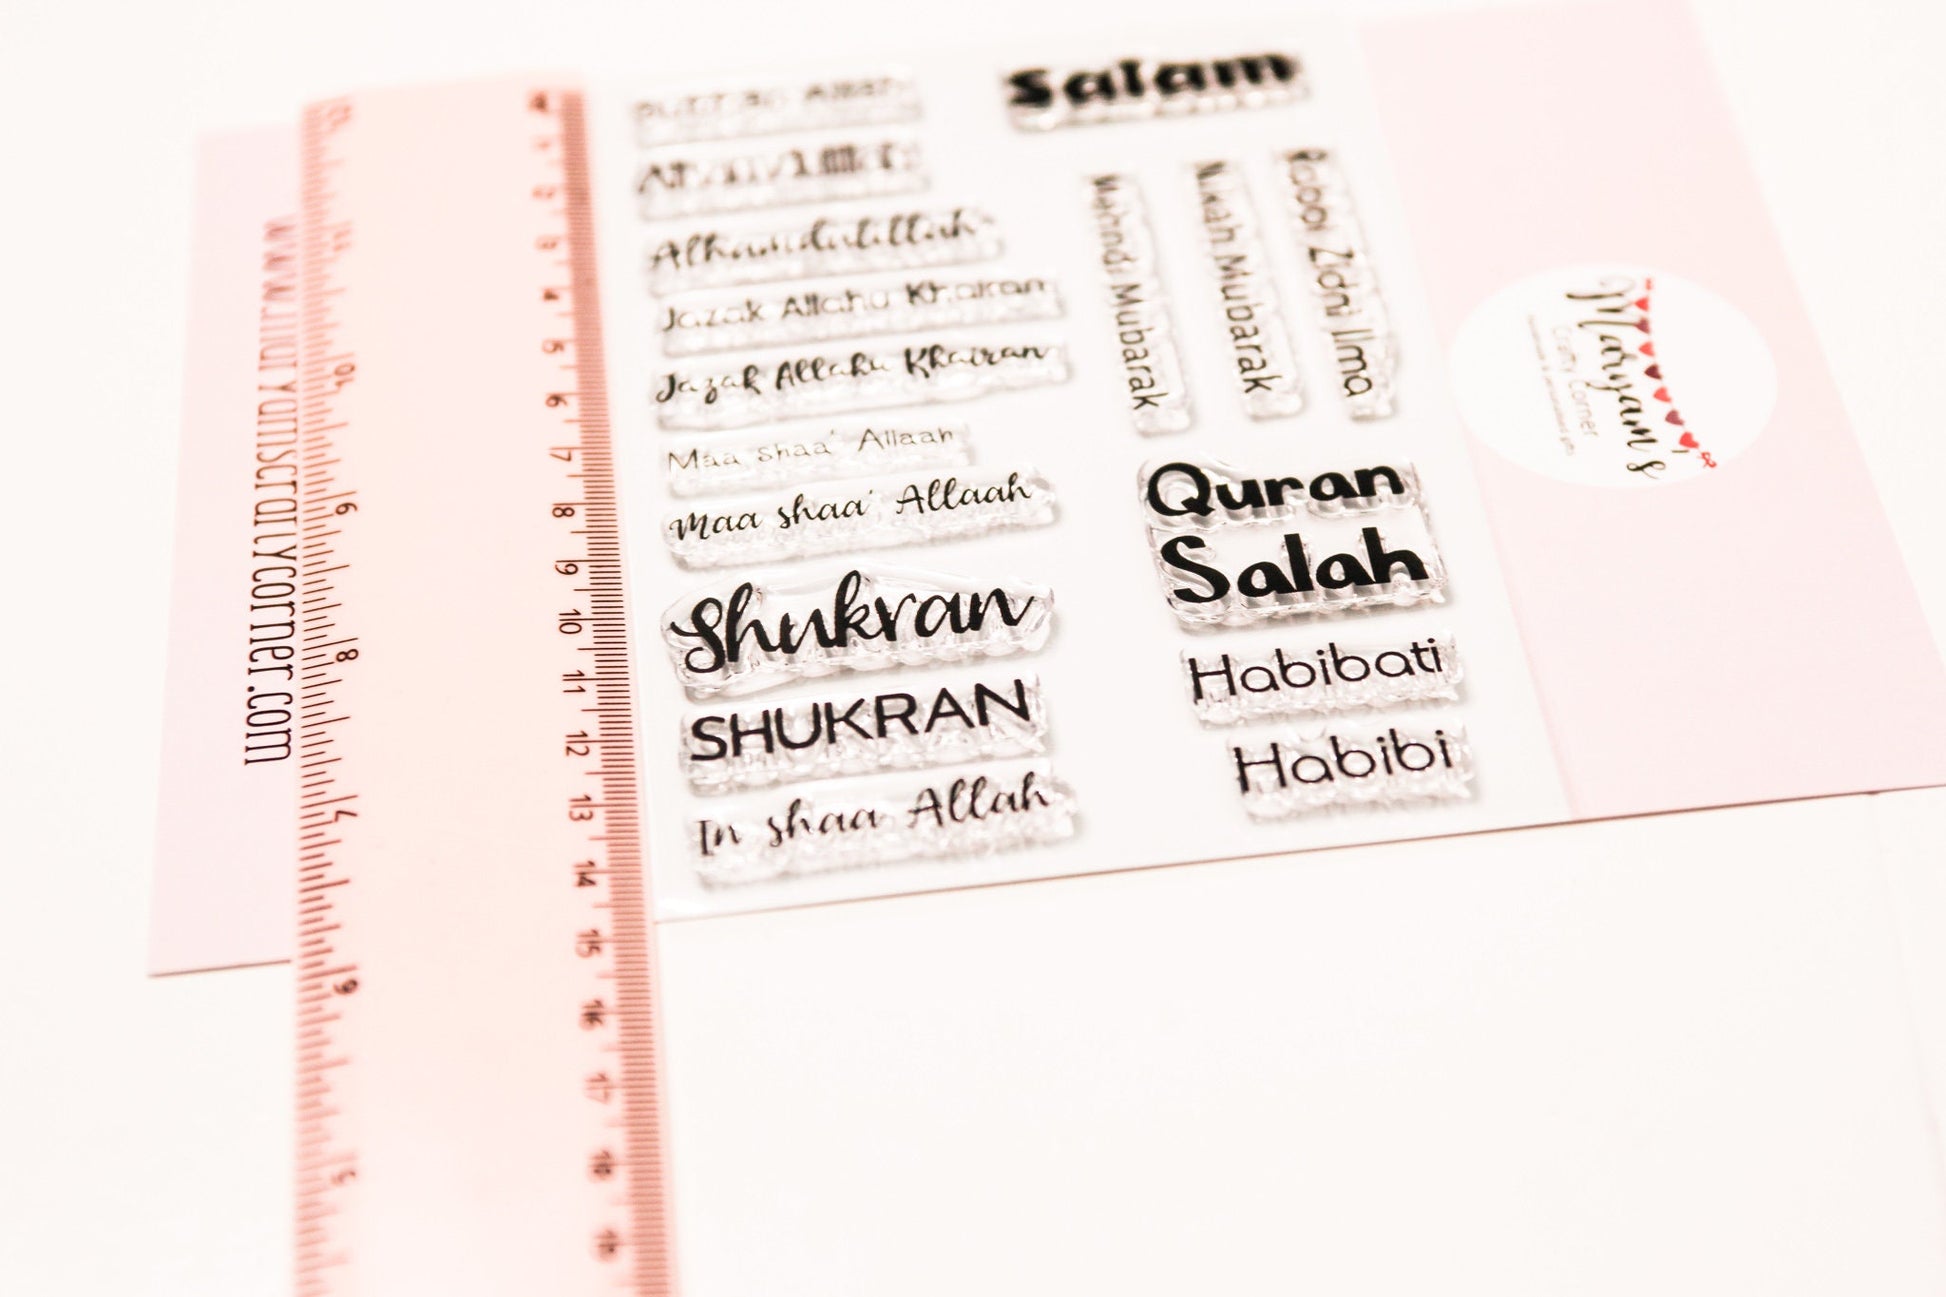 www.maryamscraftycorner.com
12
11
10
9
8
7
6
5
1
2
3
4
5
6
7
8
9
10
11
12
13
14
15
16
17
18
19
Alhamdulillah
Jazak Allahu Khairan
Jazak Allahu Khairan
Maa shaa' Allaah
Maa shaa' Allaah
Shukran
SHUKRAN
In shaa Allah
Salam
Mehndi Mubarak
Nikah Mubarak
Rabbi Zidni Ilma
Quran
Salah
Habibati
Habibi
Maryam's
Crafty Corner